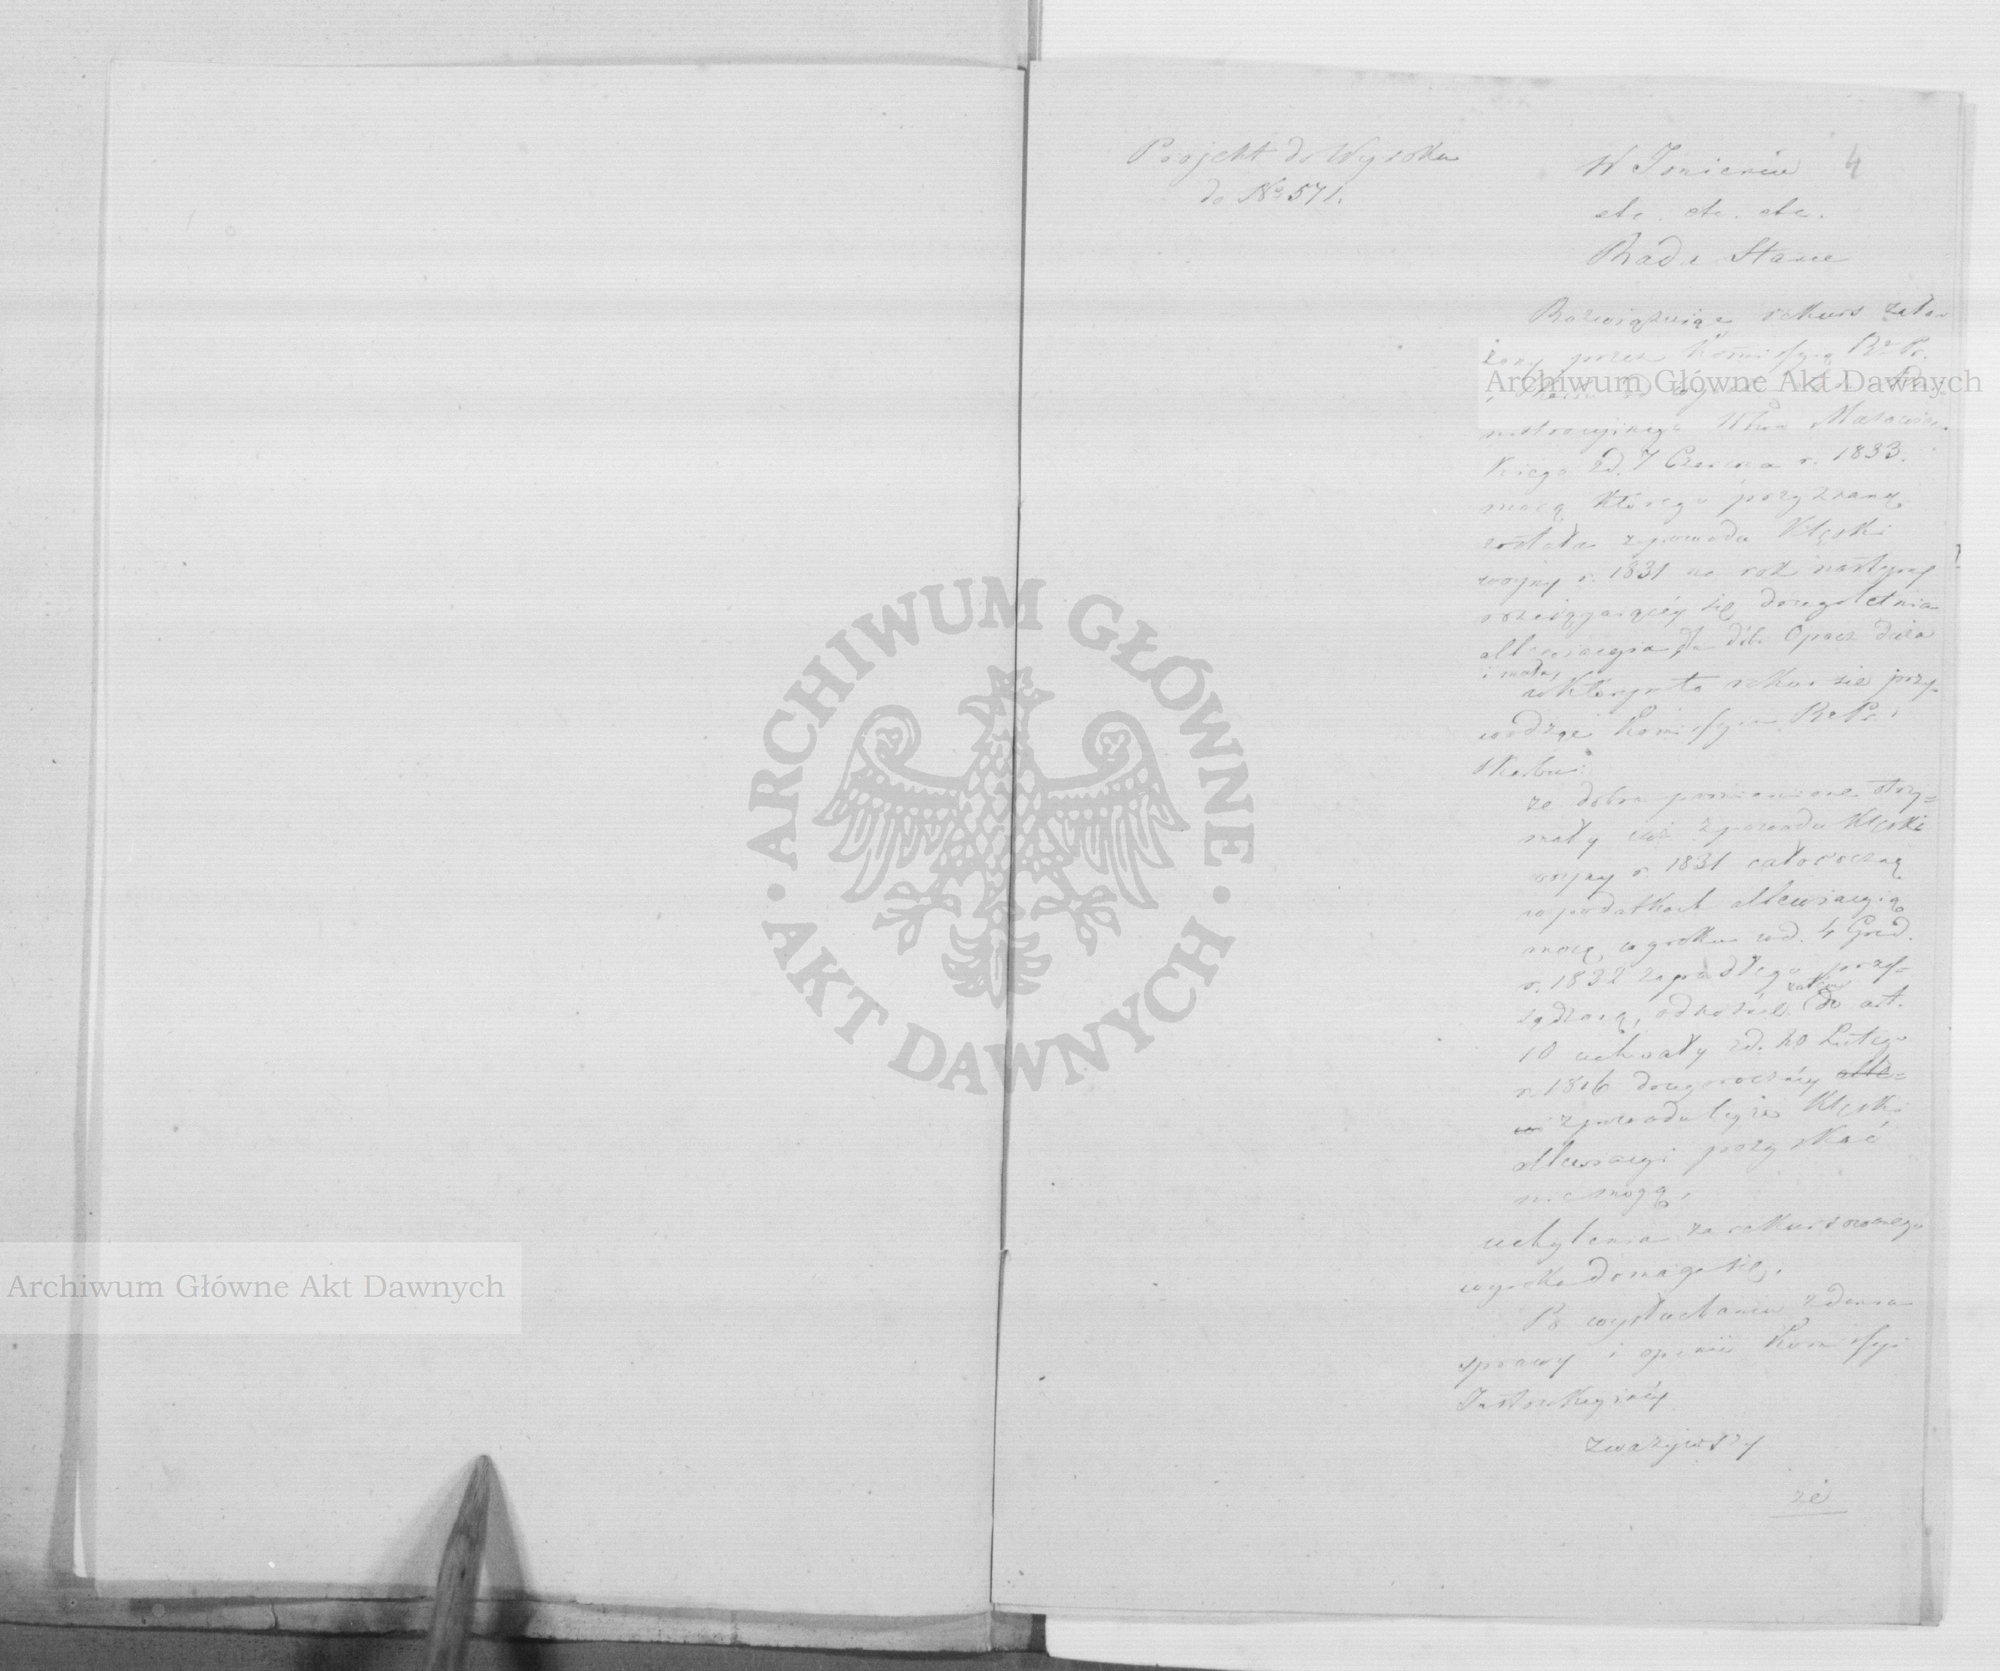 Projekt do Wyroku
do No 571.
4
W Imieniu
etc. etc. etc.
Rada Stanu
Rozwiązuiąc rekurs zało
żony przez Kommissyą R. P.
i Skarbu od wyroku
nistracyjnego Wtwa Mazowiec
kiego zd. 7 Czerwca r. 1833.
mocą którego przyznaną
została z powodu klęski
wojny r. 1831 na rok następny
rozciągaiącéy się drugoletnia
allewiacyia dla dób. Opacz duża
i mała,
w którymto rekursie przy
wodząc Kommissyia R. P. i
Skarbu:
że dobra pomienione otrzy=
mały iuż z powodu klęski
wojny r. 1831 całoroczną
w podatkach allewiacyią
mocą wyroku z d. 4 Grud.
r. 1832 zapadłego, przy=
sądzoną, odnośnie do art.
10 uchwały zd. 20 Lutego
r. 1816 drugorocznéy alle=
wi z powodu teyże klęski
allewiacyi pozyskać
nie mogą,
uchylenia zarekursowanego
wyroku domaga się.
Po wysłuchaniu zdania
sprawy i opinii Kommissyi
Instrukcyinéy
zważywszy
że
Archiwum Główne Akt Dawnych
Archiwum Główne Akt Dawnych
ARCHIWUM GŁÓWNE
AKT DAWNYCH